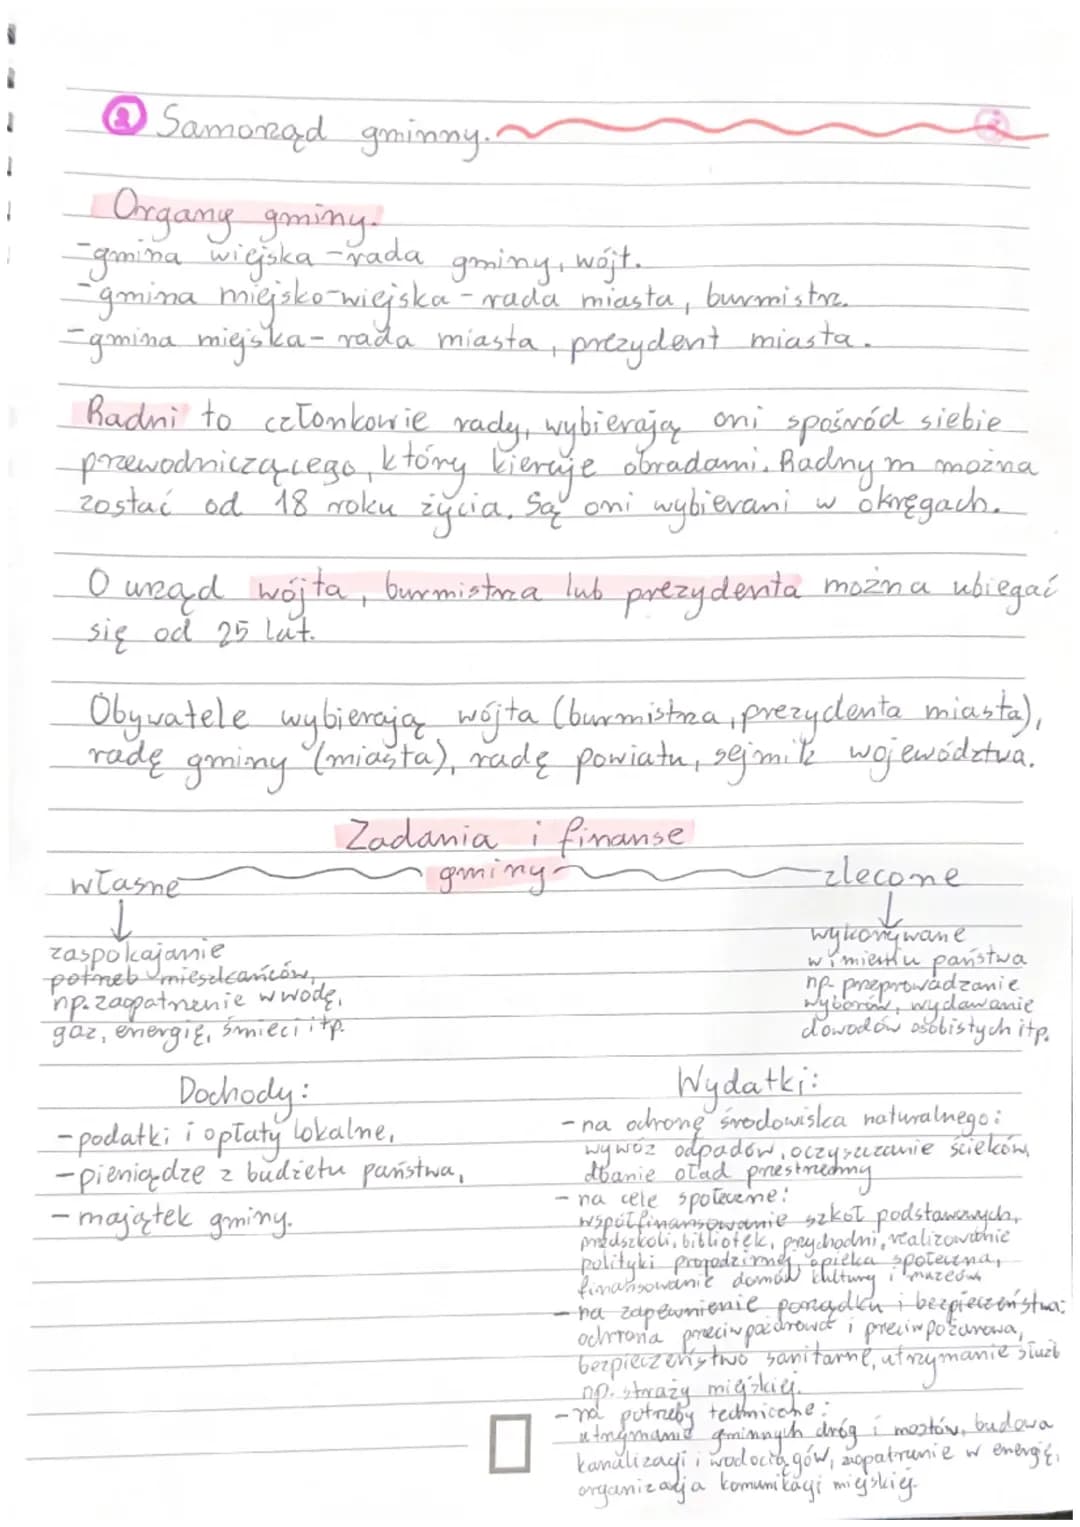 2 Samorząd gminny.
Organy gminy.
-gmina wiejska -rada gminy, wójt.
-gmina miejsko-wiejska - rada miasta, burmistrz.
-gmina miejska - rada miasta, prezydent miasta.
Radni to członkowie rady, wybierają oni spośród siebie
przewodniczącego, który kieruje obradami. Radnym można
zostać od 18 roku życia. Są oni wybierani w okręgach.
O urząd wójta, burmistrza lub prezydenta można ubiegać
się od 25 lat.
Obywatele wybierają wójta (burmistrza, prezydenta miasta),
radę gminy (miasta), radę powiatu, sejmik województwa.
Zadania i finanse
gminy
własne
zaspokajanie
potrzeb mieszkańców,
np. zaopatrzenie w wodę,
gaz, energię, śmieci itp.
zlecone
wykonywane
w imieniu państwa
np. przeprowadzanie
wyborów, wydawanie
dowodów osobistych itp.
Dochody:
- podatki i opłaty lokalne,
- pieniądze z budżetu państwa,
- majątek gminy.
Wydatki:
- na ochronę środowiska naturalnego:
wywóz odpadów, oczyszczanie ścieków,
dbanie o ład przestrzenny
- na cele społeczne:
współfinansowanie szkół podstawowych,
przedszkoli, bibliotek, przychodni, realizowanie
polityki prorodzinnej, opieka społeczna,
finansowanie domów kultury i muzeów
- na zapewnienie porządku i bezpieczeństwa:
ochrona i przeciwpożarowa,
bezpieczeństwo sanitarne, utrzymanie służb
np. straży miejskiej.
- na potrzeby techniczne:
utrzymanie gminnych dróg i mostów, budowa
kanalizacji i wodociągów, zaopatrzenie w energię,
organizacja komunikacji miejskiej.